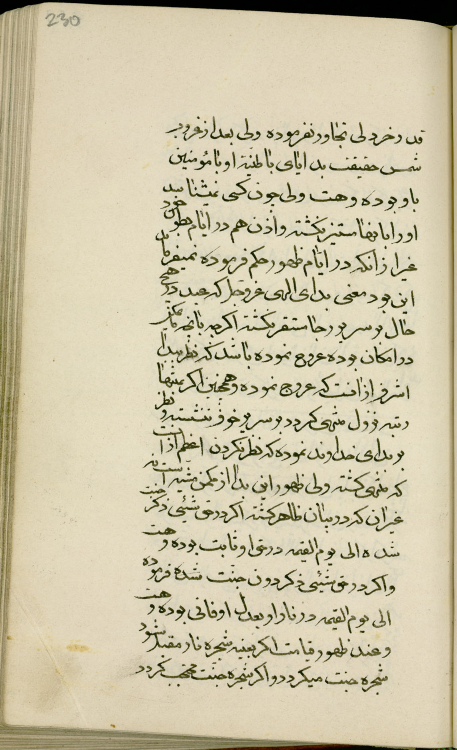 230
قدر خردلی تجاوز نفرموده ولی بعد از غروب
شمس حقیقت بداهای باطنیه او با مؤمنین
باو بوده و هست ولی چون کسی نمیشناسد
او را با نها مستیز نکشته و اذن هم در ایام بطون خود
غیر از انکه در ایام ظهور حکم فرموده نمیفرماید
این بود معنی بدای الهی عز و جل که عبد در هیچ
حال بر سریر رجا مستقر نکشته اگر چه باعلی
در امکان بوده عروج نموده باشد که نظر ببدا
اشرف از انست که عروج نموده و همچنین اگر بمنتها
رتبه نزول منتهی کردد بر سریر خوف ننشسته و نظر
بر بدای خداوند نموده که نظر نکردن اعظم از انست
که منتهی کشته ولی ظهور این بدا از مکمن مشیة است نه
غیر ان که در بیان ظاهر کشته اگر در حق شیئی ذکر جنت
شده الی یوم القیمه در حق او ثابت بوده و هست
و اگر در حق شیئی ذکر دون جنت شده فرموده
الی یوم القیمه در نار او بعدل او فانی بوده و هست
و عند ظهور قیامت اگر بعینه شجره نار مقبل شود
شجره جنت میکردد و اگر شجره جنت محتجب کردد